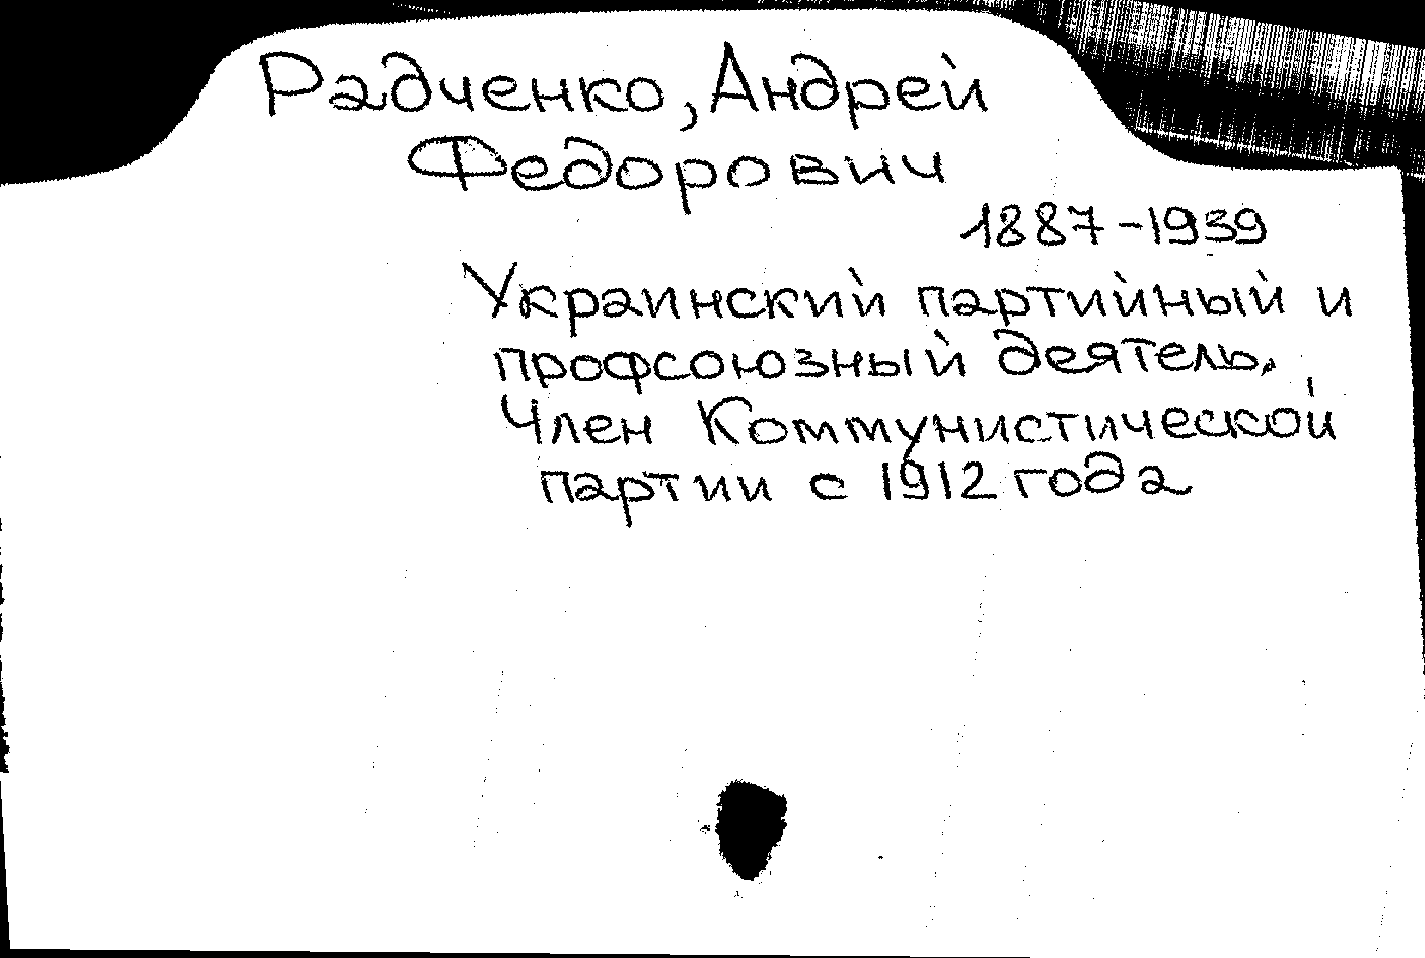 Радченко, Андрей
Федорович
1887-1939
Украинский партийный и
профсоюзный деятель.
Член Коммунистической
партии с 1912 года